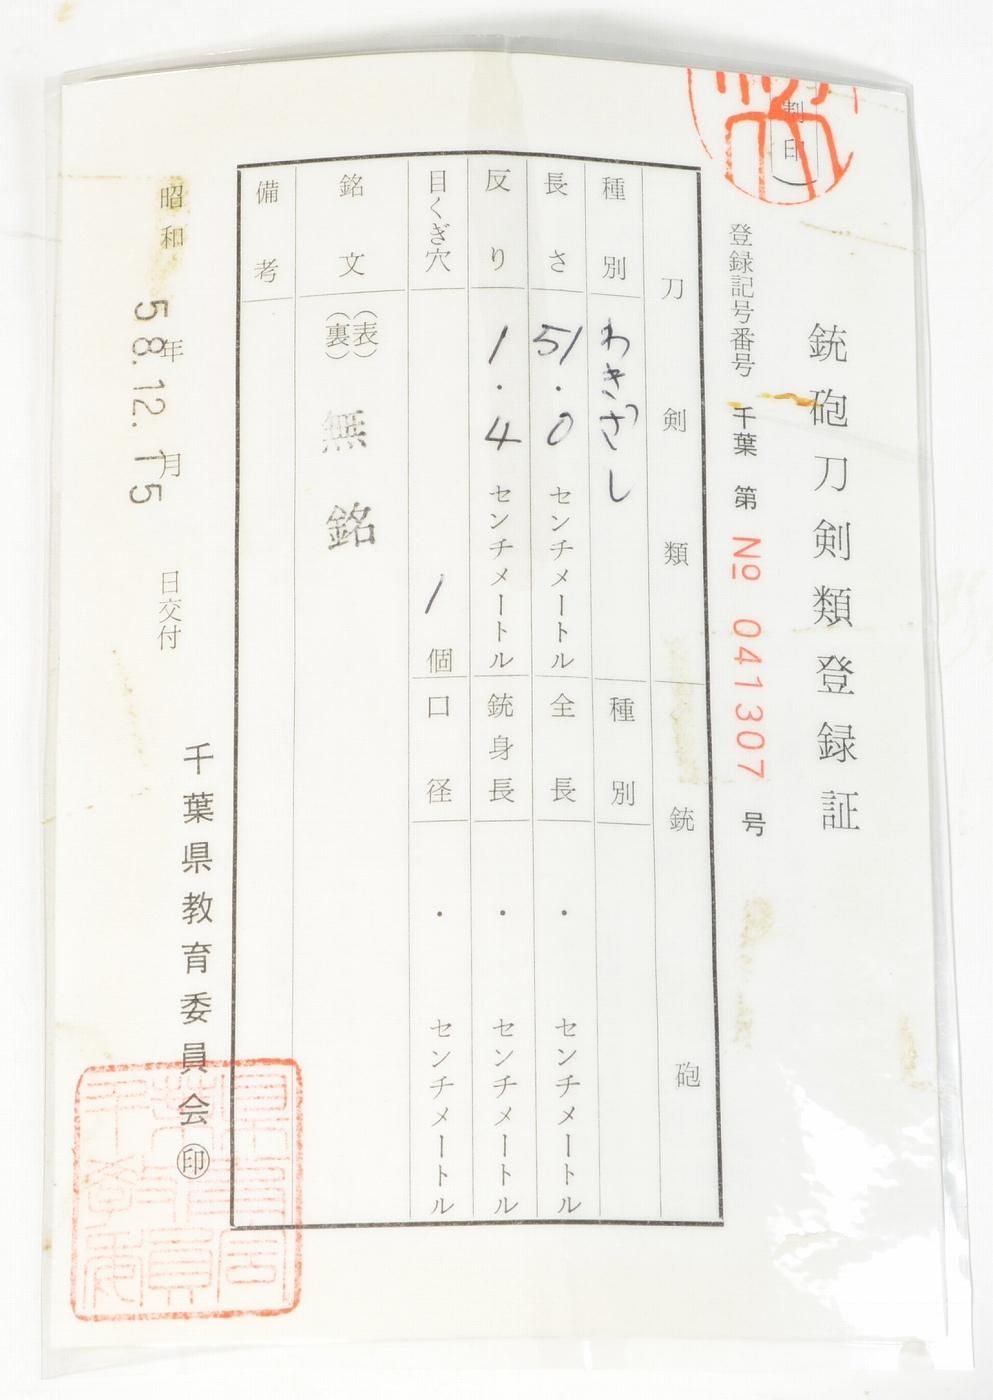 割印
銃砲刀剣類登録証
登録記号番号 千葉 第 No 041307 号
刀剣類
種別 わきざし
長さ 51.0 センチメートル
反り 1.4 センチメートル
目くぎ穴 1 個
銃砲
種別
全長 ・ センチメートル
銃身長 ・ センチメートル
口径 ・ センチメートル
銘文 (表) 無銘
(裏)
備考
昭和 58年12.月15 日交付
千葉県教育委員会 印